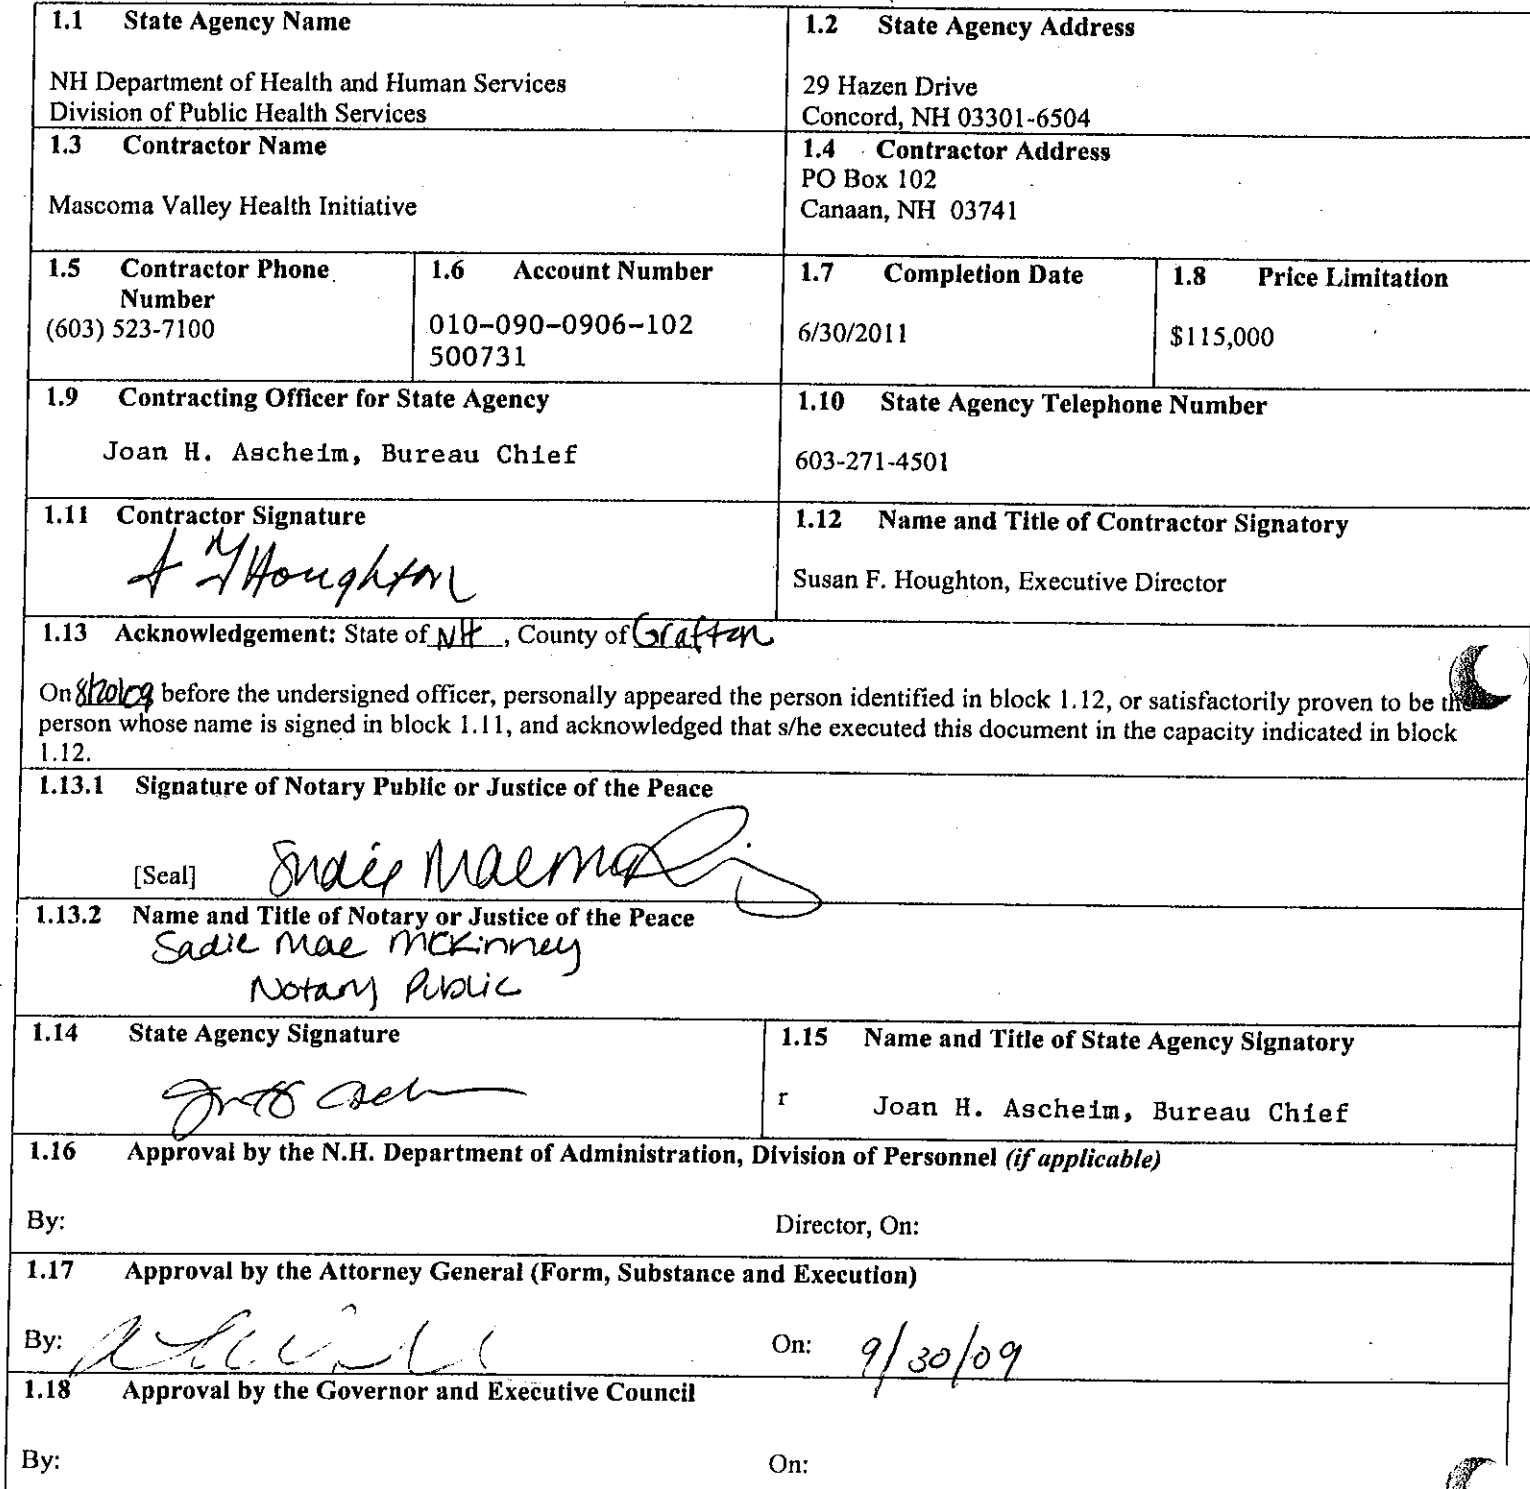 1.1 State Agency Name
NH Department of Health and Human Services
Division of Public Health Services
1.2 State Agency Address
29 Hazen Drive
Concord, NH 03301-6504
1.3 Contractor Name
Mascoma Valley Health Initiative
1.4 Contractor Address
PO Box 102
Canaan, NH 03741
1.5 Contractor Phone
Number
(603) 523-7100
1.6 Account Number
010-090-0906-102
500731
1.7 Completion Date
6/30/2011
1.8 Price Limitation
$115,000
1.9 Contracting Officer for State Agency
Joan H. Ascheim, Bureau Chief
1.10 State Agency Telephone Number
603-271-4501
1.11 Contractor Signature
Houghton
1.12 Name and Title of Contractor Signatory
Susan F. Houghton, Executive Director
1.13 Acknowledgement: State of NH , County of Grafton
On 8/20/09 before the undersigned officer, personally appeared the person identified in block 1.12, or satisfactorily proven to be the
person whose name is signed in block 1.11, and acknowledged that s/he executed this document in the capacity indicated in block
1.12.
1.13.1 Signature of Notary Public or Justice of the Peace
[Seal] Sadie Mae
1.13.2 Name and Title of Notary or Justice of the Peace
Sadie Mae McKinney
Notary Public
1.14 State Agency Signature
1.15 Name and Title of State Agency Signatory
r Joan H. Ascheim, Bureau Chief
1.16 Approval by the N.H. Department of Administration, Division of Personnel (if applicable)
By: Director, On:
1.17 Approval by the Attorney General (Form, Substance and Execution)
By: On: 9/30/09
1.18 Approval by the Governor and Executive Council
By: On: